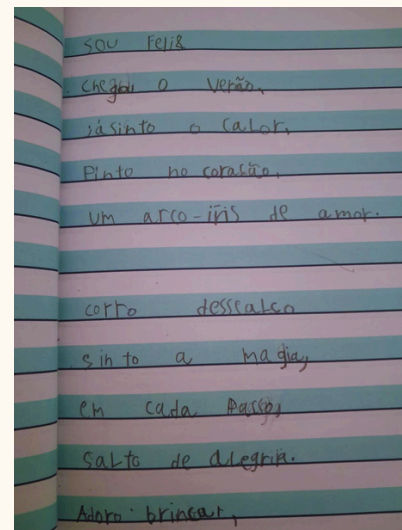 sou Feliz
chegou o verão,
jásinto o calor,
Pinto no corasão,
um arco-íris de amor.
corro desscalco
sinto a magia,
em cada passo,
salto de alegria.
Adoro brincar,